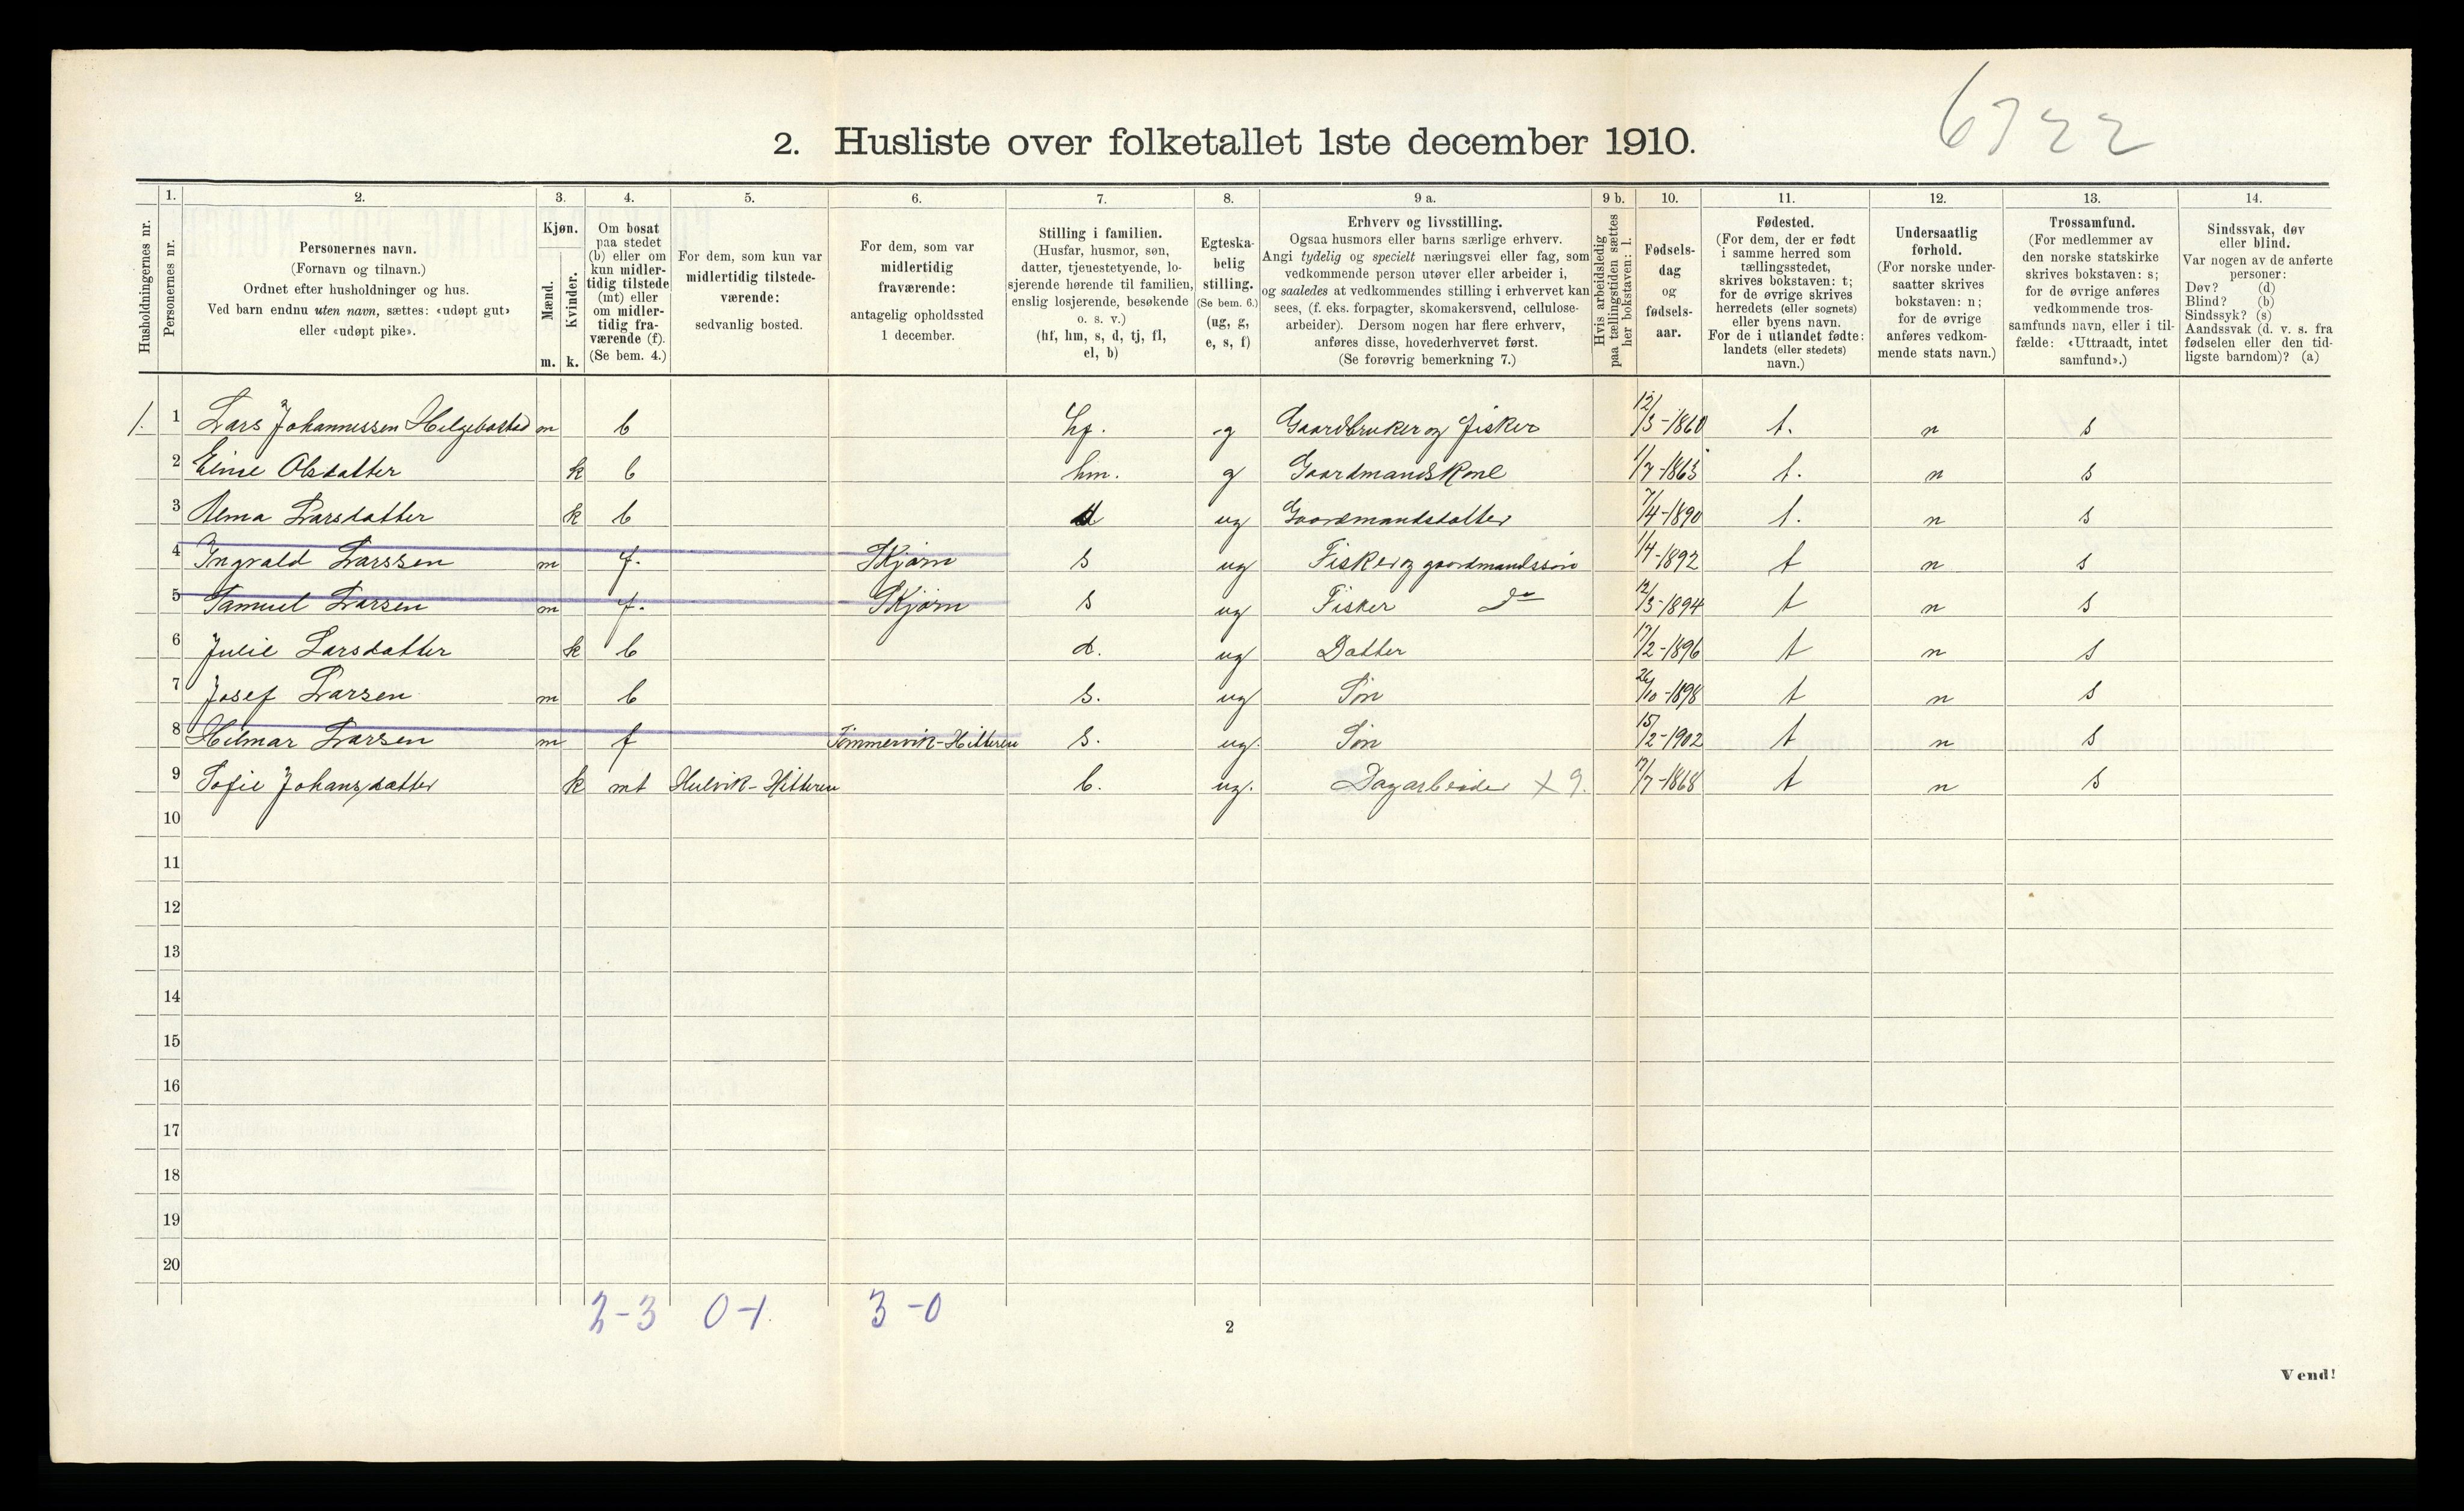 6722
2. Husliste over folketallet 1ste december 1910.
Husholdningernes nr.
1. Personernes nr.
2. Personernes navn. (Fornavn og tilnavn.) Ordnet efter husholdninger og hus. Ved barn endnu uten navn, sættes: «udøpt gut» eller «udøpt pike».
3. Kjøn. Mænd. m. Kvinder. k.
4. Om bosat paa stedet (b) eller om kun midlertidig tilstede (mt) eller om midlertidig fraværende (f). (Se bem. 4.)
5. For dem, som kun var midlertidig tilstedeværende: sedvanlig bosted.
6. For dem, som var midlertidig fraværende: antagelig opholdssted 1 december.
7. Stilling i familien. (Husfar, husmor, søn, datter, tjenestetyende, losjerende hørende til familien, enslig losjerende, besøkende o. s. v.) (hf, hm, s, d, tj, fl, el, b)
8. Egteskabelig stilling. (Se bem. 6.) (ug, g, e, s, f)
9 a. Erhverv og livsstilling. Ogsaa husmors eller barns særlige erhverv. Angi tydelig og specielt næringsvei eller fag, som vedkommende person utøver eller arbeider i, og saaledes at vedkommendes stilling i erhvervet kan sees, (f. eks. forpagter, skomakersvend, cellulosearbeider). Dersom nogen har flere erhverv, anføres disse, hovederhvervet først. (Se forøvrig bemerkning 7.)
9 b. Hvis arbeidsledig paa tællingstiden sættes her bokstaven: l.
10. Fødselsdag og fødselsaar.
11. Fødested. (For dem, der er født i samme herred som tællingsstedet, skrives bokstaven: t; for de øvrige skrives herredets (eller sognets) eller byens navn. For de i utlandet fødte: landets (eller stedets) navn.)
12. Undersaatlig forhold. (For norske undersaatter skrives bokstaven: n; for de øvrige anføres vedkommende stats navn.)
13. Trossamfund. (For medlemmer av den norske statskirke skrives bokstaven: s; for de øvrige anføres vedkommende trossamfunds navn, eller i tilfælde: «Uttraadt, intet samfund».)
14. Sindssvak, døv eller blind. Var nogen av de anførte personer: Døv? (d) Blind? (b) Sindssyk? (s) Aandssvak (d. v. s. fra fødselen eller den tidligste barndom)? (a)
1. 1 Lars Johannessen Helgebostad m b hf. g Gaardbruker og Fisker 12/3-1860 t. n s
2 Eline Olsdatter k b hm. g GaardmandsKone 1/7-1863 t. n s
3 Alma Larsdatter k b d ug Gaardmandsdatter 7/4-1890 t. n s
4 Ingvald Larssen m f. Skjørn s ug Fisker og gaardmandssøn 1/4-1892 t n s
5 Samuel Larsen m f. Skjørn s ug Fisker Do 12/3-1894 t n s
6 Julie Larsdatter k b d. ug Datter 17/2-1896 t n s
7 Josef Larsen m b s. ug Søn 26/10-1898 t n s
8 Hilmar Larsen m f Tømmervik-Hitteren s. ug. Søn 15/2-1902 t n s
9 Sofie Johansdatter k mt Hulvik-Hitteren b. ug. Dagarbeider x 9. 17/7-1868 t n s
10
11
12
13
14
15
16
17
18
19
20
2-3 0-1. 3-0
2
Vend!